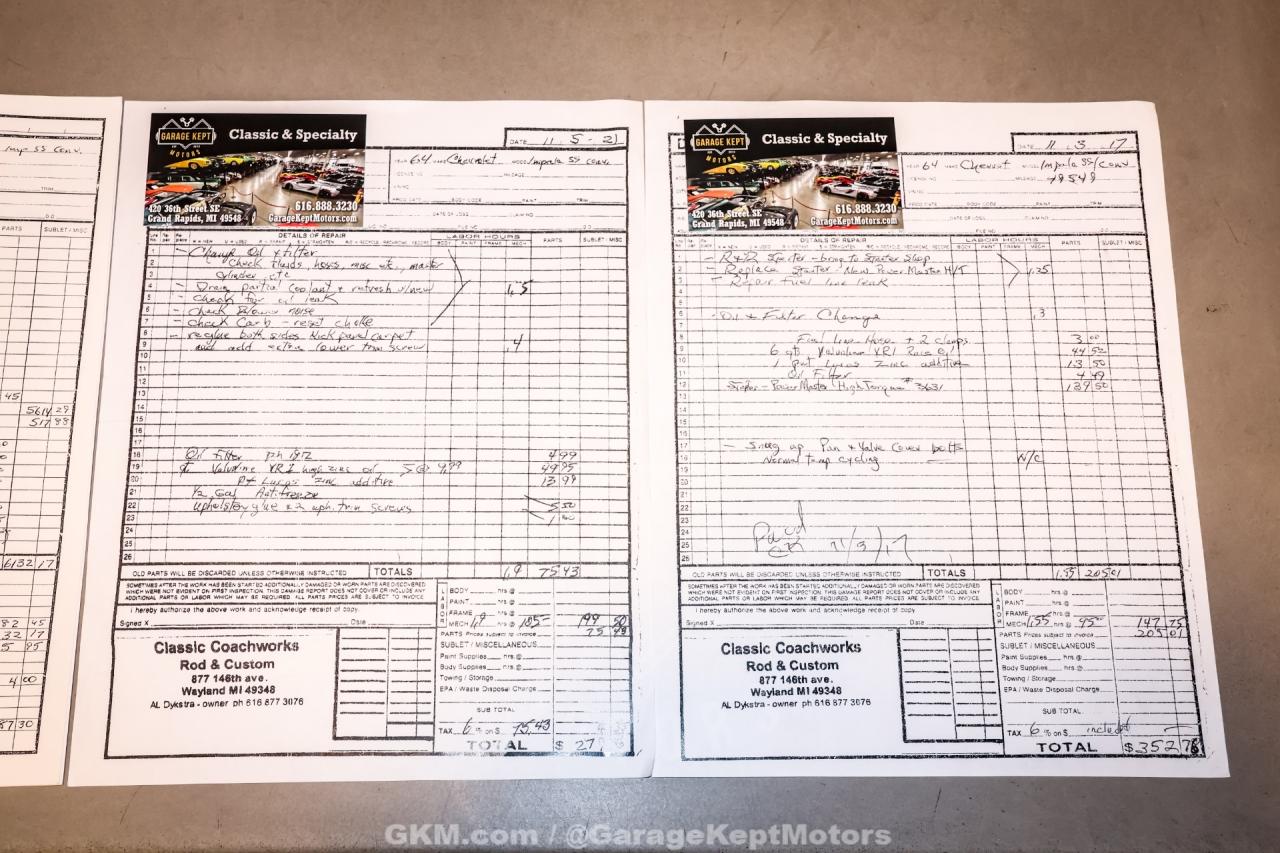 Imp SS Conv.
TRIM
PARTS
SUBLET / MISC
45
5614 29
517 88
6132 17
82 45
32 17
5 95
4 00
87 30
GARAGE KEPT
MOTORS
Classic & Specialty
420 36th Street SE
Grand Rapids, MI 49548
616.888.3230
GarageKeptMotors.com
DATE 11 - 5 - 21
YEAR 64 MAKE Chevrolet MODEL Impala SS Conv.
MILEAGE
PROD DATE BODY CODE PAINT TRIM
DATE OF LOSS CLAIM NO.
FILE NO.
DETAILS OF REPAIR
LABOR HOURS
BODY PAINT FRAME MECH PARTS SUBLET / MISC
1 Change Oil & filter
2 Check fluids, hoses, misc etc., master
3 Cylinder, etc
4 - Drain partial coolant & refresh w/new 1.5
5 - Check for oil leak
6 - Check Blower noise
7 - Check Carb - reset choke
8 - reglue both sides kick panel carpet
9 and add extra lower trim screw .4
10
11
12
13
14
15
16
17
18 Oil Filter ph 1 4 99
19 Valvoline VR1 high zinc oil, 5 @ 9.99 49 95
20 Pt Lucas Zinc additive 13 99
21 1/2 Gal Antifreeze
22 Upholstery glue & 2 uph. trim screws 5 50
23 1 00
24
25
26
OLD PARTS WILL BE DISCARDED UNLESS OTHERWISE INSTRUCTED TOTALS 1.9 75 43
SOMETIMES AFTER THE WORK HAS BEEN STARTED ADDITIONALLY DAMAGED OR WORN PARTS ARE DISCOVERED
WHICH WERE NOT EVIDENT ON FIRST INSPECTION. THIS DAMAGE REPORT DOES NOT COVER OR INCLUDE ANY
ADDITIONAL PARTS OR LABOR WHICH MAY BE REQUIRED. ALL PARTS PRICES ARE SUBJECT TO INVOICE.
I hereby authorize the above work and acknowledge receipt of copy.
Signed X Date
Classic Coachworks
Rod & Custom
877 146th ave.
Wayland MI 49348
AL Dykstra - owner ph 616 877 3076
LABOR
BODY hrs @
PAINT hrs @
FRAME hrs @
MECH 1.9 @ 105- 199 50
PARTS Prices subject to invoice 75 43
SUBLET / MISCELLANEOUS
Paint Supplies hrs @
Body Supplies hrs @
Towing / Storage
EPA / Waste Disposal Charge
SUB TOTAL
TAX 6 % on $ 75.43
TOTAL $ 27
GARAGE KEPT
MOTORS
Classic & Specialty
420 36th Street SE
Grand Rapids, MI 49548
616.888.3230
GarageKeptMotors.com
DATE 11 . 3 . 17
YEAR 64 MAKE Chevrolet MODEL Impala SS/Conv
LICENSE NO. MILEAGE 78548
VIN NO.
PROD DATE BODY CODE PAINT TRIM
DATE OF LOSS CLAIM NO.
FILE NO.
DETAILS OF REPAIR
LABOR HOURS
BODY PAINT FRAME MECH PARTS SUBLET / MISC
1 - R&R Starter - bring to Starter Shop
2 - Replace Starter - New Power Master H/T 1.25
3 - Repair fuel line leak
4
5
6 - Oil & Filter Change .3
7
8 Fuel Line Hose + 2 clamps 3 00
9 6 qt Valvoline VR1 Race Oil 44 52
10 1 pint Lucas Zinc additive 13 50
11 Oil Filter 4 49
12 Starter - Power Master High Torque # 139 50
13
14
15
16
17 - Snug up Pan & Valve Cover bolts
18 Normal temp cycling N/C
19
20
21
22
23
24 Paid
25 CK 11/3/17
26
OLD PARTS WILL BE DISCARDED UNLESS OTHERWISE INSTRUCTED TOTALS 1.55 205 01
SOMETIMES AFTER THE WORK HAS BEEN STARTED ADDITIONALLY DAMAGED OR WORN PARTS ARE DISCOVERED
WHICH WERE NOT EVIDENT ON FIRST INSPECTION. THIS DAMAGE REPORT DOES NOT COVER OR INCLUDE ANY
ADDITIONAL PARTS OR LABOR WHICH MAY BE REQUIRED. ALL PARTS PRICES ARE SUBJECT TO INVOICE.
I hereby authorize the above work and acknowledge receipt of copy.
Signed X Date
Classic Coachworks
Rod & Custom
877 146th ave.
Wayland MI 49348
AL Dykstra - owner ph 616 877 3076
LABOR
BODY hrs @
PAINT hrs @
FRAME hrs @
MECH 1.55 @ 95- 147 75
PARTS Prices subject to invoice 205 01
SUBLET / MISCELLANEOUS
Paint Supplies hrs @
Body Supplies hrs @
Towing / Storage
EPA / Waste Disposal Charge
SUB TOTAL
TAX 6 % on $ included
TOTAL $ 352 76
GKM.com / @GarageKeptMotors